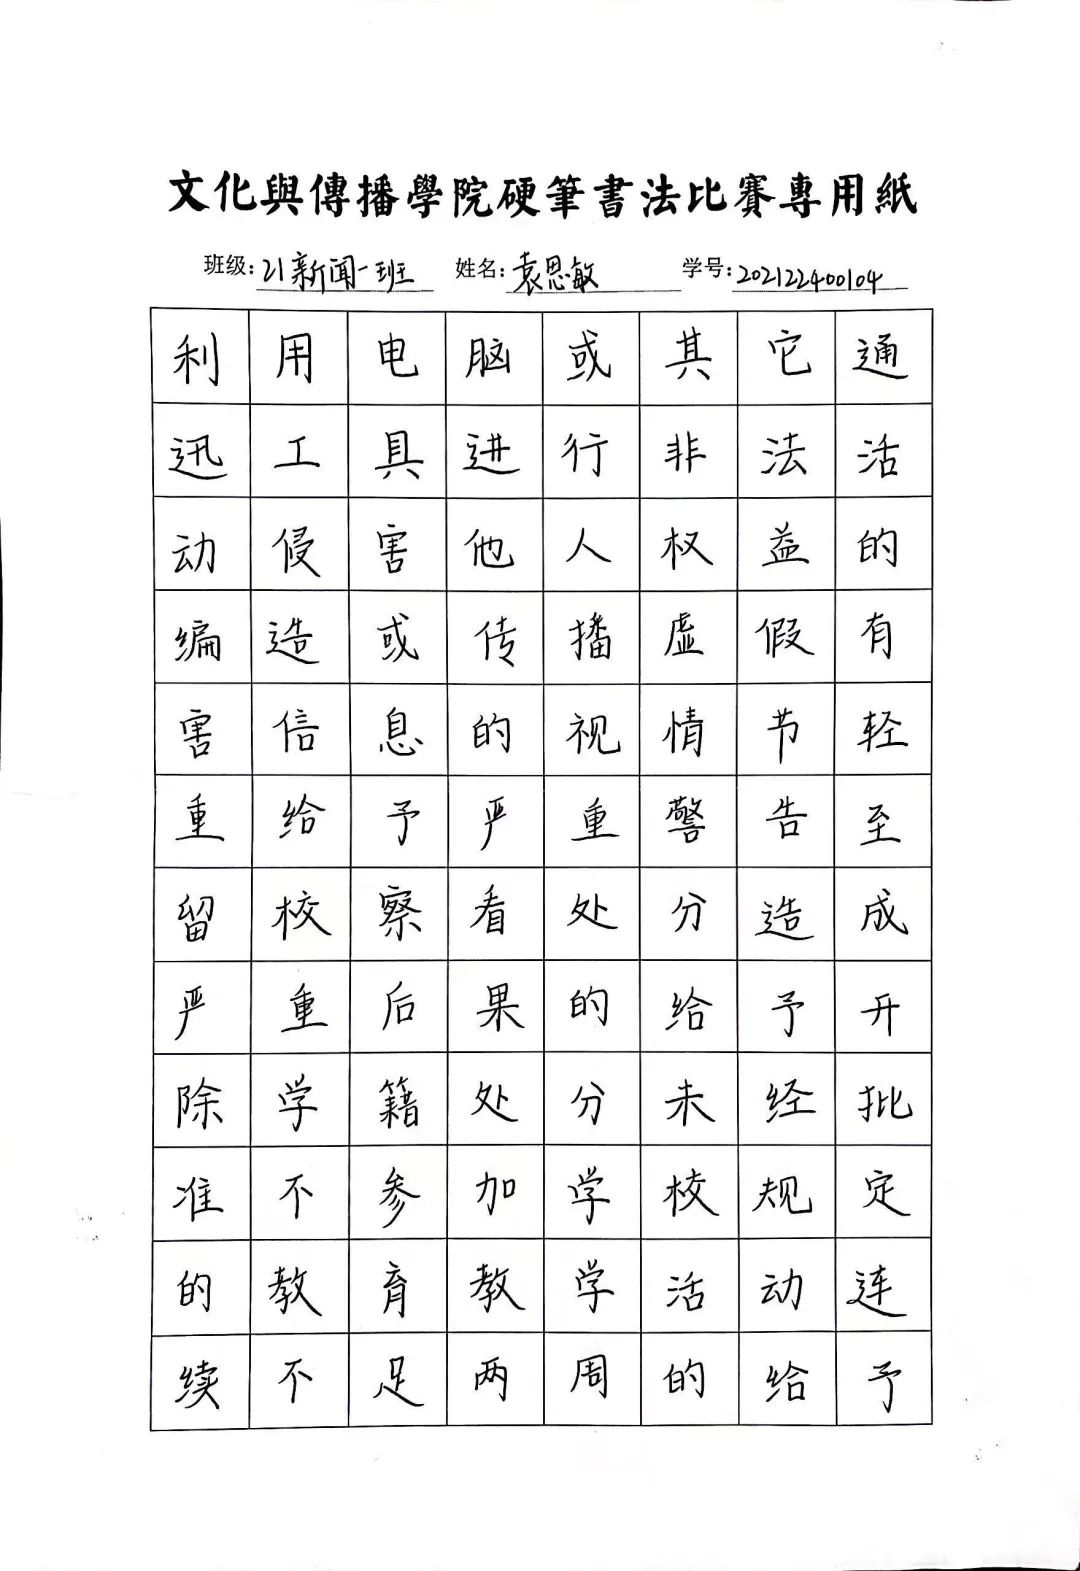 文化與傳播學院硬筆書法比賽專用紙
班级:21新闻一班 姓名:袁思敏 学号:202122400104
利用电脑或其它通
迅工具进行非法活
动侵害他人权益的
编造或传播虚假有
害信息的视情节轻
重给予严重警告至
留校察看处分造成
严重后果的给予开
除学籍处分未经批
准不参加学校规定
的教育教学活动连
续不足两周的给予